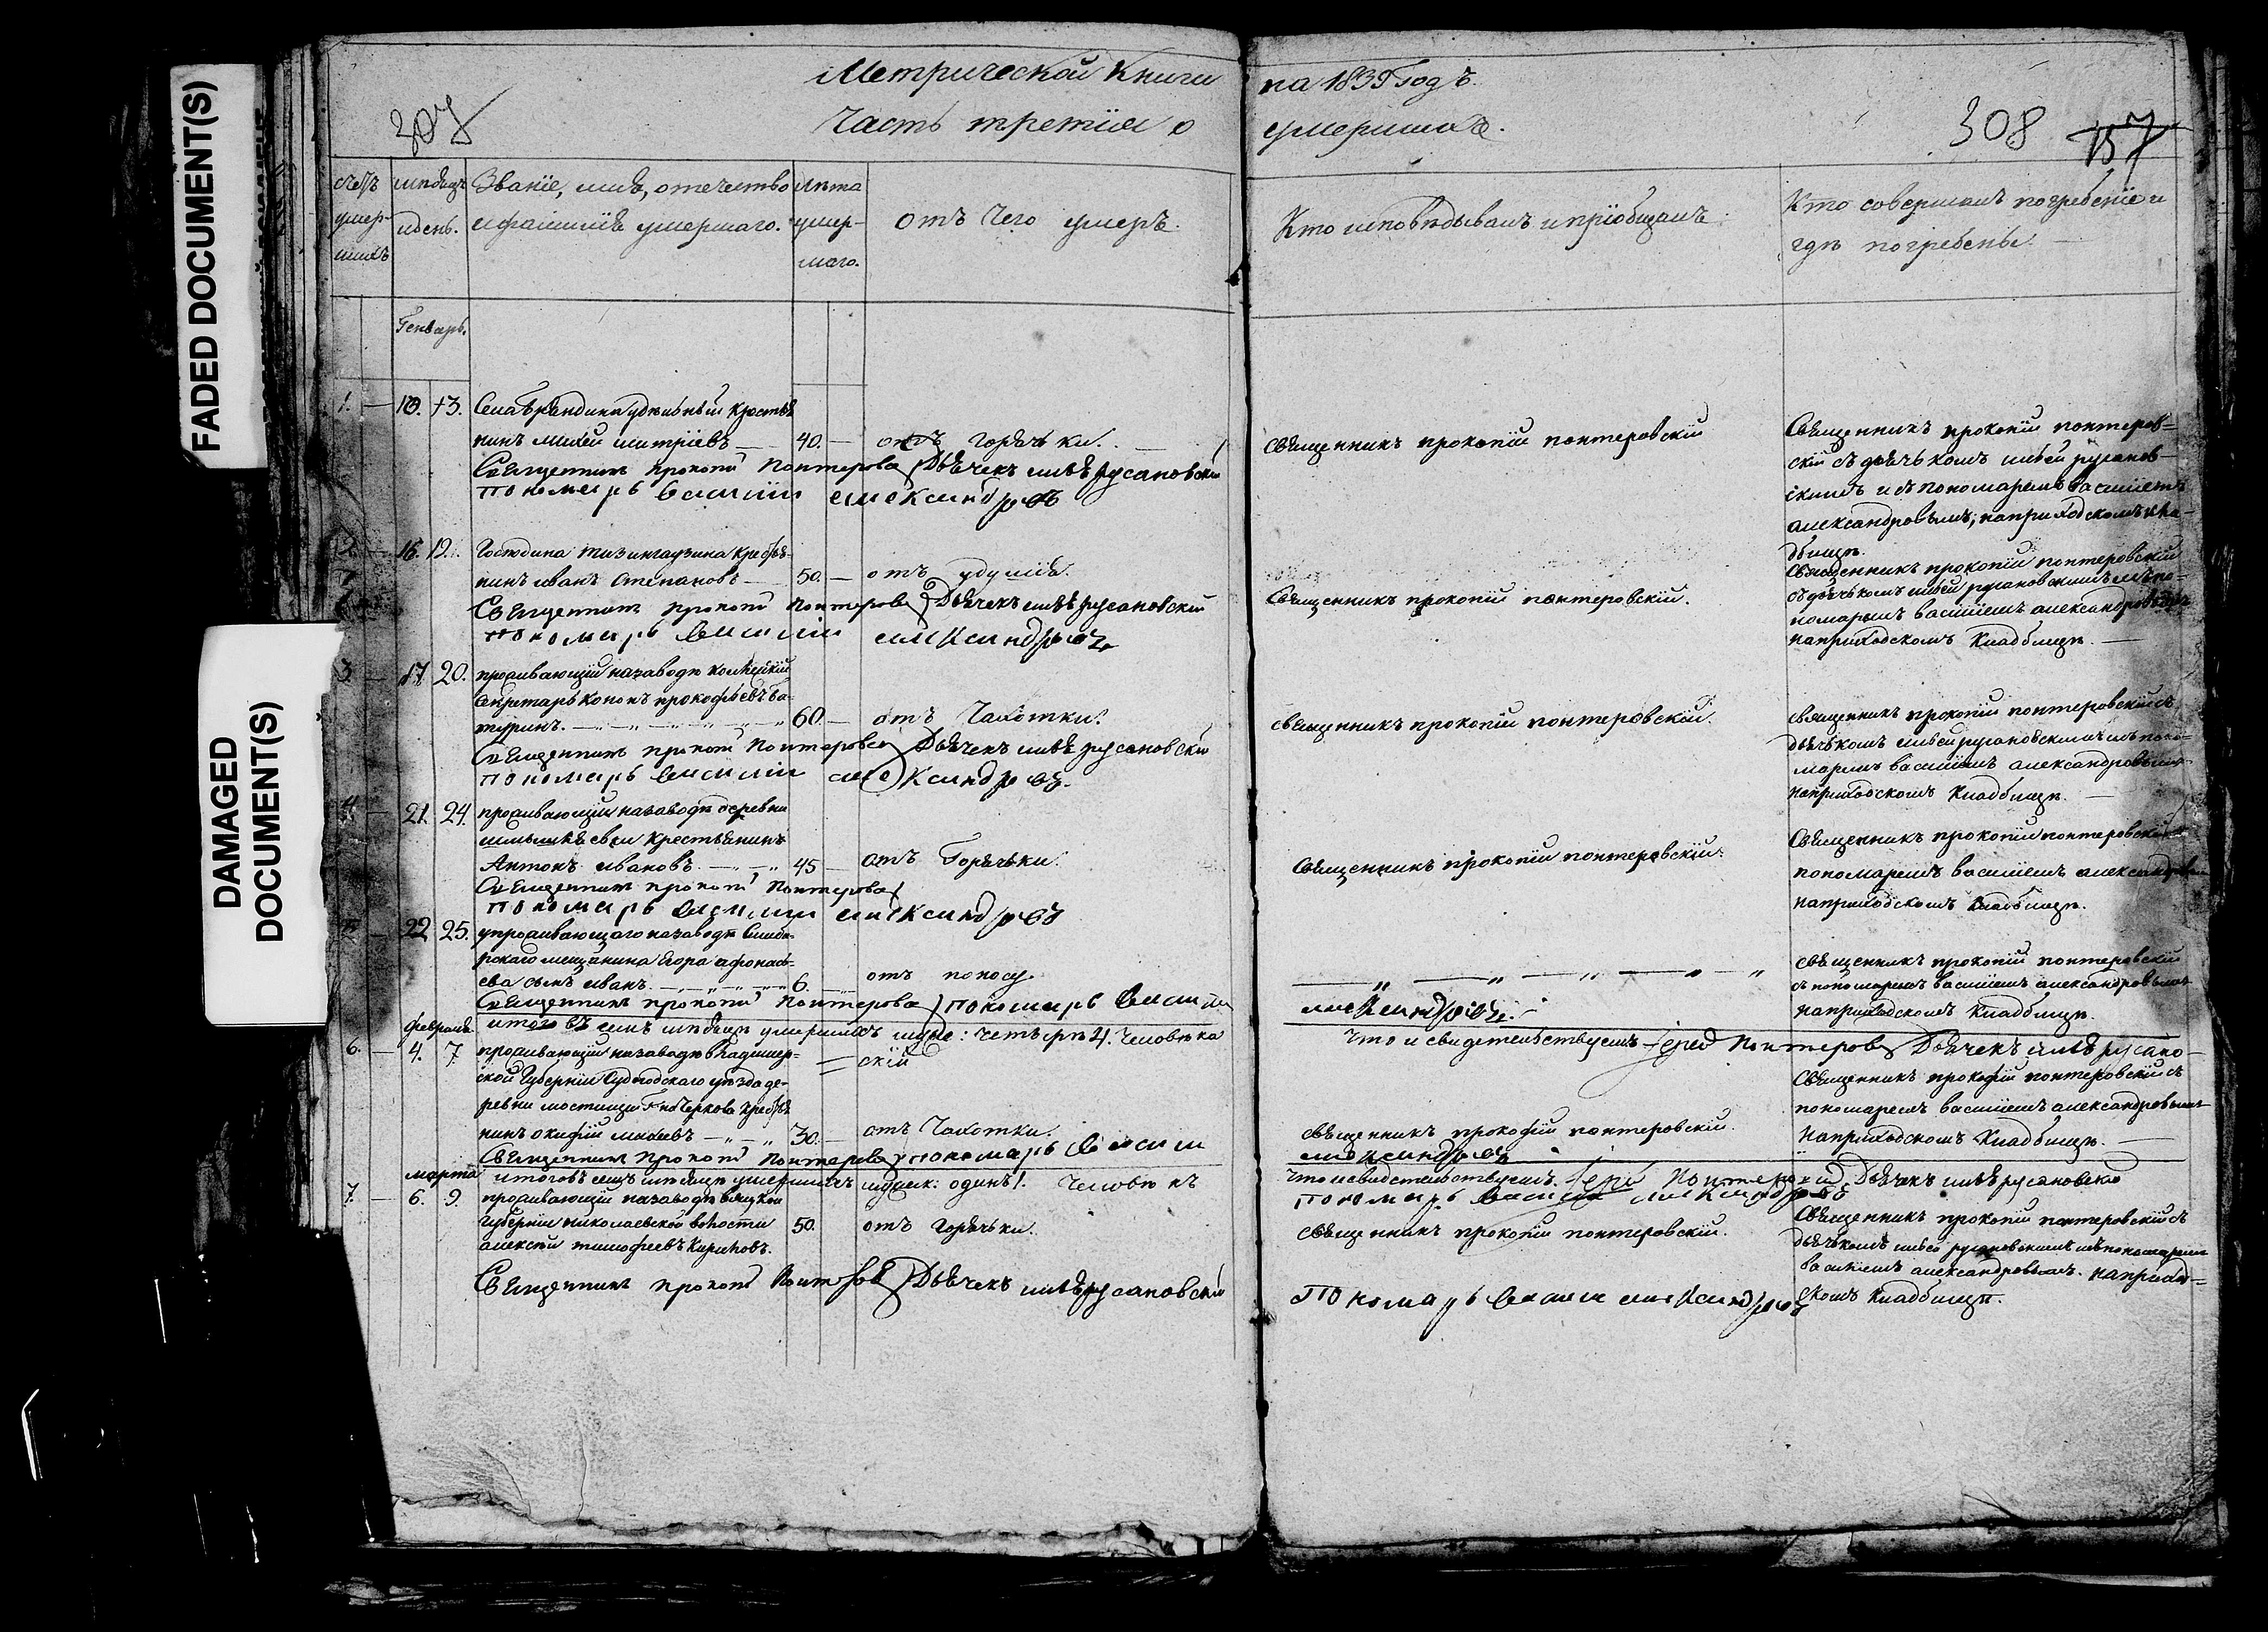 FADED DOCUMENT(S)
DAMAGED
DOCUMENT(S)
Метрической книги на 1839 годъ.
Часть третия о умершихъ.
307
308 157
счетъ умер-шихъ
мѣсяцъ и день.
Званіе, имя, отечество
и фамилія умершаго.
лѣта умер-шаго.
отъ чего умеръ.
Кто исповѣдывалъ и пріобщалъ.
Кто совершалъ погребеніе и
гдѣ погребены.
Генварь.
1. 10. 13. Села удѣльный крестья
нинъ 40. отъ горячьки.
священникъ прокопій понтеровскій
Священникъ прокопій понтеров=
скій съ дьячькомъ русанов
скимъ и съ пономаремъ василіемъ
александровымъ, на приходскомъ кла-
дбищѣ.
Священникъ прокопий Понтеровъ Дьячекъ русановскій
пономарь василий александровъ
2 16. 19. Господина тизингаузина крестья-
нинъ иванъ Степановъ 50. отъ удушія.
Священникъ прокопій понтеровскій.
Священникъ прокопій понтеровскій
съ дьячькомъ русановскимъ и съ по-
номаремъ василіемъ александровымъ
на приходскомъ кладбищѣ.
Священникъ прокопий Понтеровъ Дьячекъ русановский
пономарь василий александровъ
3 17. 20. проживающій на заводѣ колежскій
секретарь кононъ прокофьевъ ба-
туринъ. 60. отъ чахотки.
священникъ прокопій понтеровскій.
священникъ прокопій понтеровскій съ
дьячькомъ русановскимъ и съ поно-
маремъ василіемъ александровымъ
на приходскомъ кладбищѣ.
Священникъ прокопий Понтеровъ Дьячекъ русановский
пономарь василий александровъ.
4 21. 24. проживающій на заводѣ деревни
крестьянинъ
Антонъ ивановъ. 45 отъ Горячьки.
священникъ прокопій понтеровскій.
Священникъ прокопій понтеровскій съ
пономаремъ василіемъ александровымъ
на приходскомъ кладбищѣ.
Священникъ прокопий Понтеровъ
пономарь василий александровъ
5 22 25. у проживающаго на заводѣ симби-
рскаго мещанина Егора афонась-
ева сынъ иванъ. 6. отъ поносу
священникъ прокопій понтеровскій
съ пономаремъ василіемъ александровымъ
на приходскомъ кладбищѣ.
Священникъ прокопий Понтеровъ пономарь василий
александровъ.
итого въ семъ мѣсяцѣ умершихъ четыре 4. человѣка
Что и свидетельствуемъ Іерей Понтеровъ Дьячекъ русано-
скій
февраля
6. 4. 7. проживающій на заводѣ владимир-
ской Губерніи Судогодскаго уѣзда де-
ревни
30. отъ чахотки.
священникъ прокофій понтеровскій.
Священникъ прокофій понтеровскій съ
пономаремъ василіемъ александровымъ
на приходскомъ кладбищѣ.
Священникъ Прокопий Понтеровъ пономарь василий
александровъ
марта
итого въ семъ мѣсяцѣ умершихъ одинъ 1. человѣкъ
Что и свидетельствуемъ. Іерей Понтеровъ Дьячекъ русановский
пономарь василий александровъ
7. 6. 9. проживающій на заводѣ вяцкой
губерніи николаевской волости
алексѣй тимофеевъ 50. отъ горячьки.
священникъ прокопій понтеровскій.
Священникъ прокопій понтеровскій съ
дьячькомъ русановскимъ и съ пономаремъ
василіемъ александровымъ. на приход=
скомъ кладбищѣ.
Священникъ прокопий Понтеровъ Дьячекъ русановский
Пономарь василий александровъ